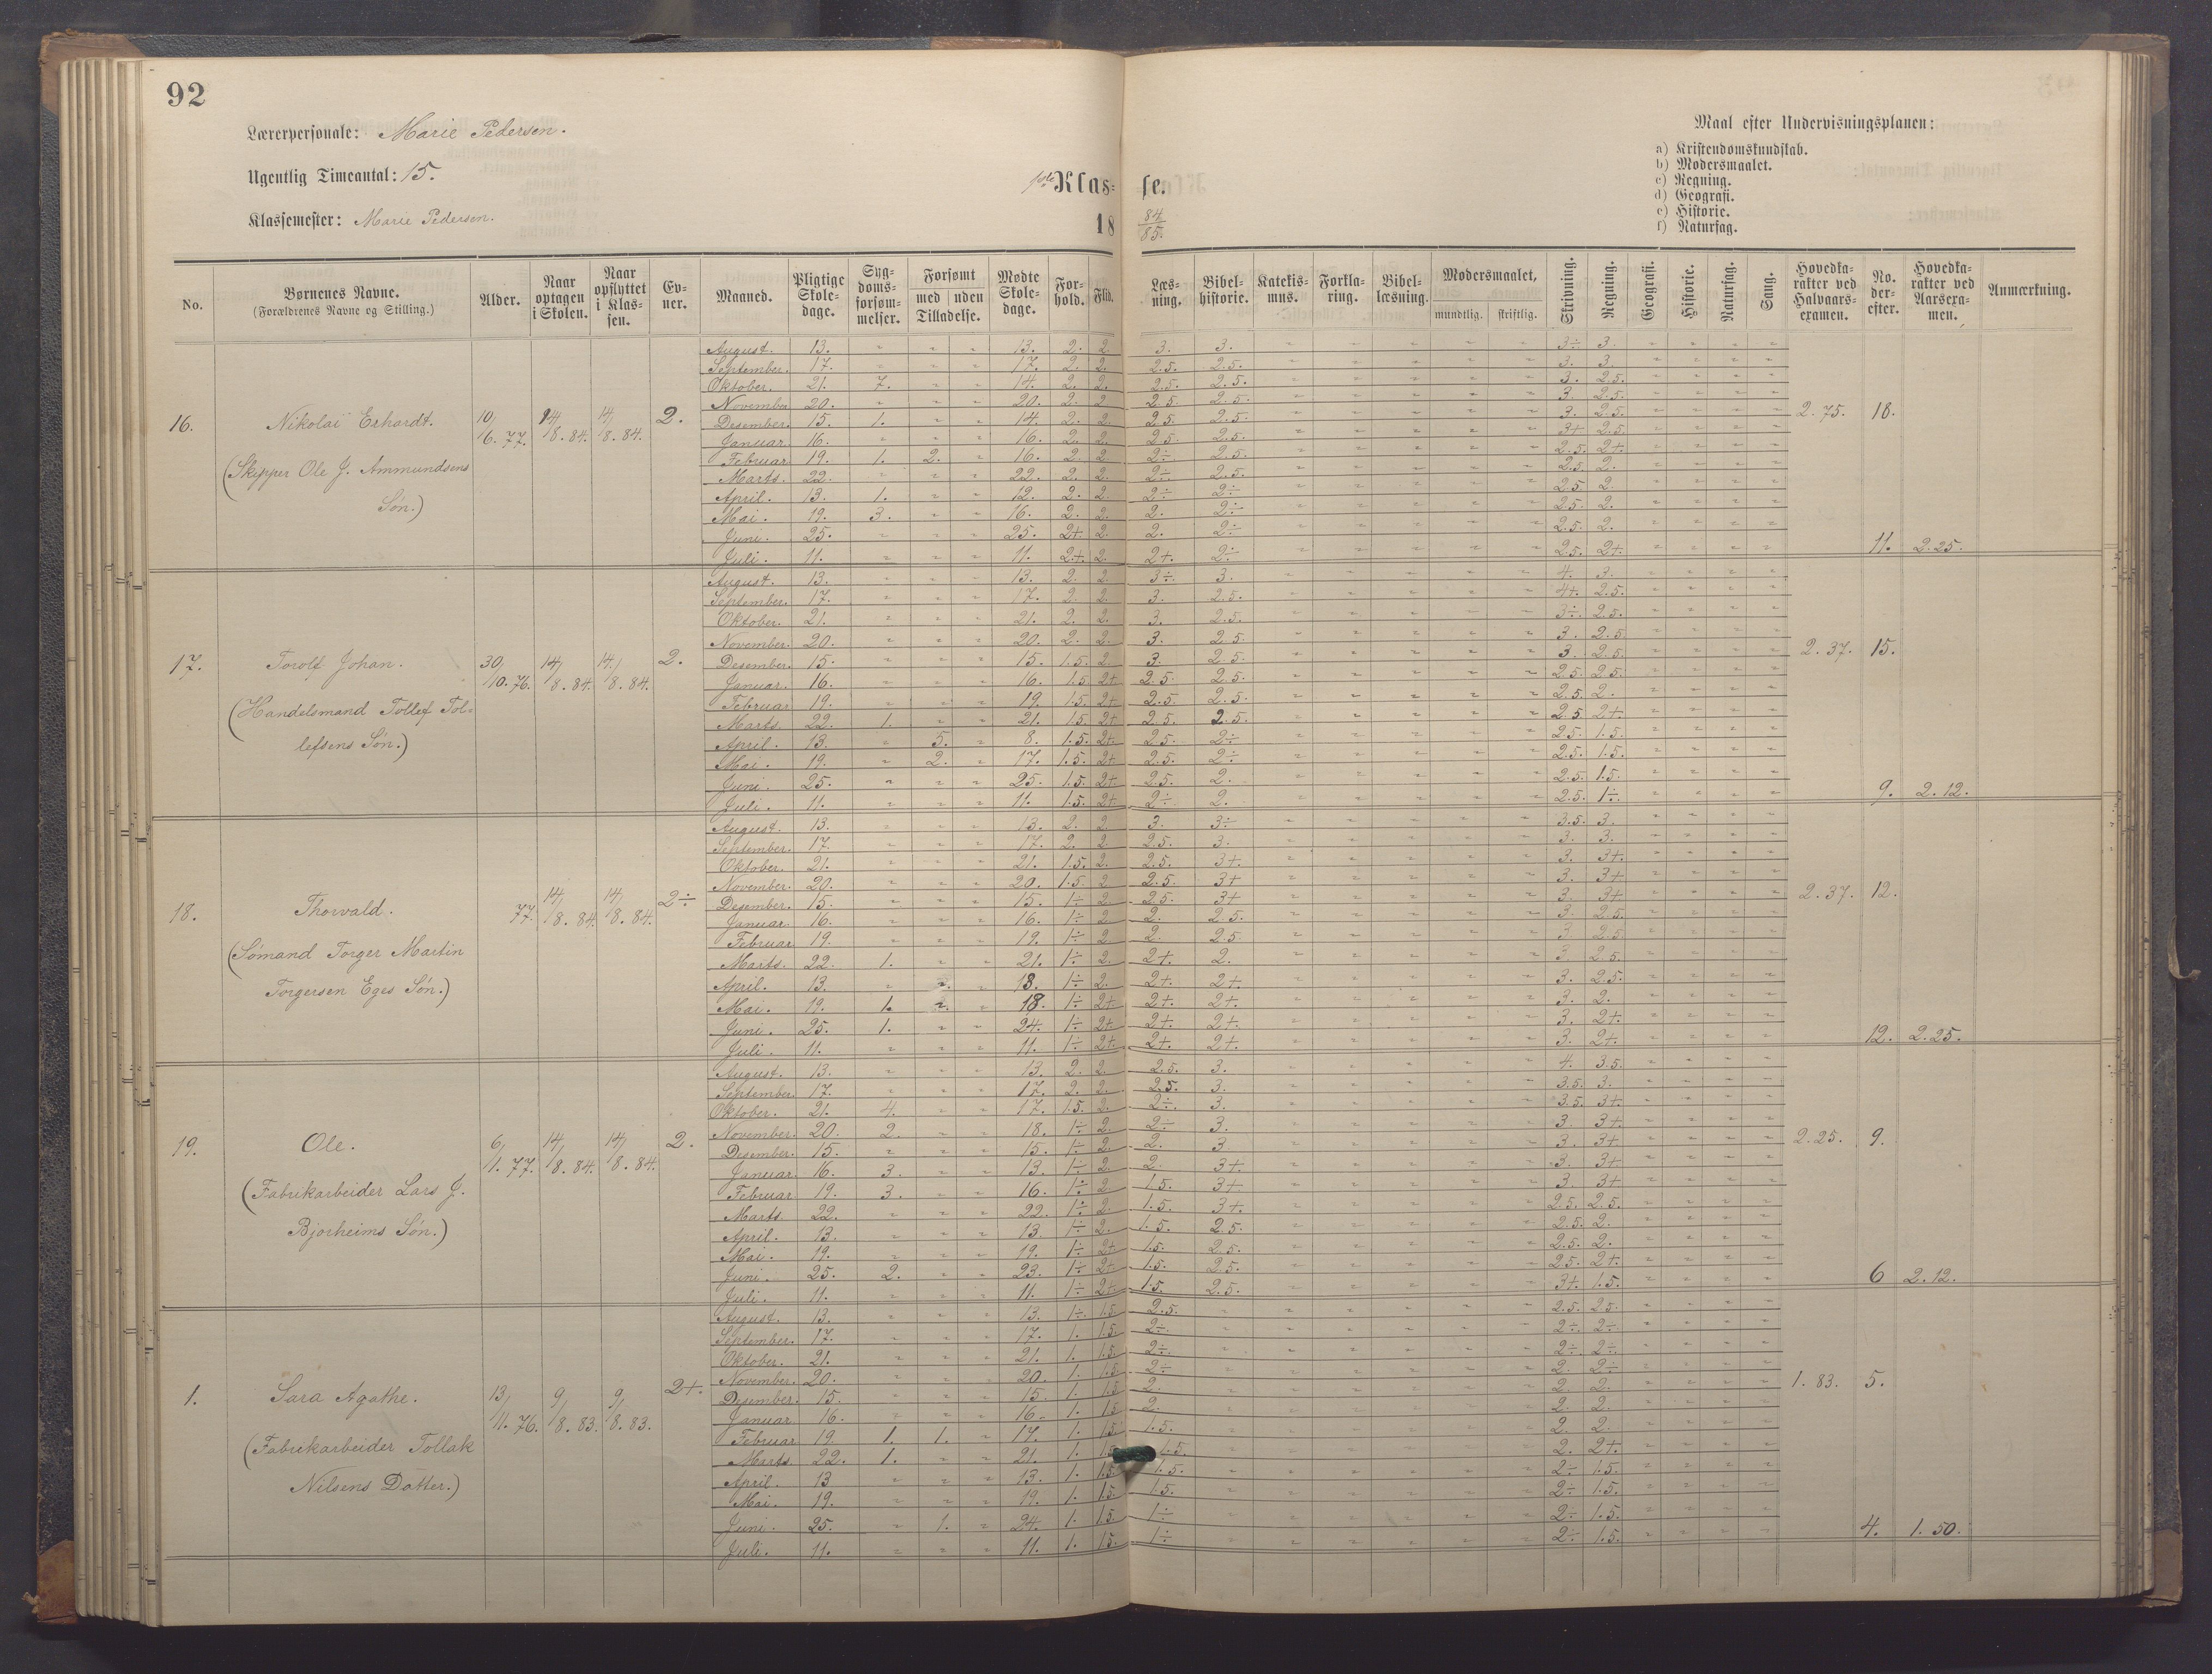 92
Lærerpersonale: Marie Pedersen.
Ugentlig Timeantal: 15.
Klassemester: Marie Pedersen.
1ste Klasse.
18 84/85.
Maal efter Undervisningsplanen:
a) Kristendomskundskab.
b) Modersmaalet.
c) Regning.
d) Geografi.
e) Historie.
f) Naturfag.
No. | Børnenes Navne. (Forældrenes Navne og Stilling.) | Alder. | Naar optagen i Skolen. | Naar opflyttet i Klassen. | Evner. | Maaned. | Pligtige Skoledage. | Sygdomsforsømmelser. | Forsømt med uden Tilladelse. | Mødte Skoledage. | Forhold. | Flid. | Læsning. | Bibelhistorie. | Katekismus. | Forklaring. | Bibellæsning. | Modersmaalet, mundtlig. skriftlig. | Skrivning. | Regning. | Geografi. | Historie. | Naturfag. | Sang. | Hovedkarakter ved Halvaarsexamen. | No. derefter. | Hovedkarakter ved Aarsexamen. | Anmærkning.
16. Nikolai Erhardt. 10/6. 77. 14/8. 84. 14/8. 84. 2. 2.75. 18.
(Skipper Ole J. Ammundsens
Søn.)
August. 13. " " " 13. 2. 2. 3. 3. 3÷ 3.
September. 17. " " " 17. 2. 2. 2.5. 2.5. 3. 3.
Oktober. 21. 7. " " 14. 2. 2. 2.5. 2.5. 3. 2.5.
November. 20. " " " 20. 2. 2. 2.5. 2.5. 3. 2.5.
Desember. 15. 1. " " 14. 2. 2. 2.5. 2.5. 3. 2.5.
Januar. 16. " " " 16. 2. 2. 2.5. 2.5. 3+ 2.5.
Februar. 19. 1. 2. " 16. 2. 2. 2÷ 2.5. 2.5. 2+.
Marts. 22. " " " 22. 2. 2. 2÷ 2.5. 2.5. 2.
April. 13. 1. " " 12. 2. 2. 2÷ 2÷ 2.5. 2.
Mai. 19. 3. " " 16. 2. 2. 2. 2÷ 2.5. 2.
Juni. 25. " " " 25. 2+. 2. 2. 2÷ 2.5. 2.
Juli. 11. " " " 11. 2+. 2. 2+. 2÷ 2.5. 2+. 11. 2.25.
17. Torolf Johan. 30/10. 76. 14/8. 84. 14/8. 84. 2. 2.37. 15.
(Handelsmand Tollef Tol-
lefsens Søn.)
August. 13. " " " 13. 2. 2. 3÷ 3. 4. 3.
September. 17. " " " 17. 2. 2. 3. 2.5. 4+. 2.5.
Oktober. 21. " " " 21. 2. 2. 3. 2.5. 3÷ 2.5.
November. 20. " " " 20. 2. 2. 3. 2.5. 3. 2.5.
Desember. 15. " " " 15. 1.5. 2. 3. 2.5. 3. 2.5.
Januar. 16. " " " 16. 1.5. 2+ 2.5. 2.5. 2.5. 2.5.
Februar. 19. " " " 19. 1.5. 2+ 2.5. 2.5. 2.5. 2.
Marts. 22. 1. " " 21. 1.5. 2+ 2.5. 2.5. 2.5. 2+.
April. 13. " 5. " 8. 1.5. 2+. 2.5. 2÷ 2.5. 1.5.
Mai. 19. " 2. " 17. 1.5. 2+. 2.5. 2÷ 2.5. 1.5.
Juni. 25. " " " 25. 1.5. 2+. 2.5. 2. 2.5. 1.5.
Juli. 11. " " " 11. 1.5. 2+. 2÷ 2. 2.5. 1÷ 9. 2.12.
18. Thorvald. 77. 14/8. 84. 14/8. 84. 2÷ 2.37. 12.
(Sømand Torger Martin
Torgersen Eges Søn.)
August. 13. " " " 13. 2. 2. 3. 3÷ 3.5. 3.
September. 17. " " " 17. 2. 2. 2.5. 3. 3. 3.
Oktober. 21. " " " 21. 1.5. 2. 2.5. 3+. 3. 3+.
November. 20. " " " 20. 1.5. 2. 2.5. 3+ 3. 3+
Desember. 15. " " " 15. 1÷ 2. 2.5. 3+ 3. 3+
Januar. 16. " " " 16. 1÷ 2. 2. 2.5. 3. 2.5.
Februar. 19. " " " 19. 1÷ 2. 2. 2.5. 3. 2.5.
Marts. 22. 1. " " 21. 1÷ 2. 2+. 2. 3. 2.5.
April. 13. " " " 13. 1÷ 2. 2+. 2+. 3. 2.5.
Mai. 19. 1. " " 18. 1÷ 2+ 2+. 2+. 3. 2.
Juni. 25. 1. " " 24. 1÷ 2+ 2+. 2+. 3. 2+.
Juli. 11. " " " 11. 1÷ 2+. 2+. 2+. 3. 2+. 12. 2.25.
19. Ole. 6/1. 77. 14/8. 84. 14/8. 84. 2. 2.25. 9.
(Fabrikarbeider Lars J.
Bjorheims Søn.)
August. 13. " " " 13. 2. 2. 2.5. 3. 4. 3.5.
September. 17. " " " 17. 2. 2. 2.5. 3. 3.5. 3.
Oktober. 21. 4. " " 17. 1.5. 2. 2÷ 3. 3.5. 3+.
November. 20. 2. " " 18. 1÷ 2. 2÷ 3. 3. 3+
Desember. 15. " " " 15. 1÷ 2. 2. 3. 3. 3+
Januar. 16. 3. " " 13. 1÷ 2. 2. 3+. 3. 3+.
Februar. 19. 3. " " 16. 1÷ 2. 1.5. 3+ 3. 3+
Marts. 22. " " " 22. 1÷ 2. 1.5. 3+. 2.5. 2.5.
April. 13. " " " 13. 1÷ 2. 1.5. 2.5. 2.5. 2.
Mai. 19. " " " 19. 1÷ 2+ 1.5. 2.5. 2.5. 2.
Juni. 25. 2. " " 23. 1÷ 2+. 1.5. 2.5. 2.5. 2+.
Juli. 11. " " " 11. 1÷ 2+. 1.5. 2.5. 3+. 1.5. 6 2.12.
1. Sara Agathe. 13/11. 76. 9/8. 83. 9/8. 83. 2+. 1.83. 5.
(Fabrikarbeider Tollak
Nilsens Datter.)
August. 13. " " " 13. 1÷ 1.5. 2.5. 2.5. 2.5.
September. 17. " " " 17. 1. 1.5. 2÷ 2÷ 2÷
Oktober. 21. " " " 21. 1. 1.5. 2÷ 2÷ 2÷
November. 20. " " " 20. 1. 1.5. 2÷ 2. 2÷
Desember. 15. " " " 15. 1. 1.5. 2. 2. 2.
Januar. 16. " " " 16. 1. 1.5. 2. 2. 2.
Februar. 19. 1. 1. " 17. 1. 1.5. 1.5. 2. 2.
Marts. 22. 1. " " 21. 1. 1.5. 1.5. 2. 2+.
April. 13 " " " 13. 1. 1.5. 1.5. 2÷ 1.5.
Mai. 19. " " " 19. 1. 1.5. 1.5. 2÷ 1.5.
Juni. 25. " 1. " 24. 1. 1.5. 1÷ 2÷ 1.5.
Juli. 11. " " " 11. 1. 1.5. 1÷ 2÷ 1.5. 4. 1.50.